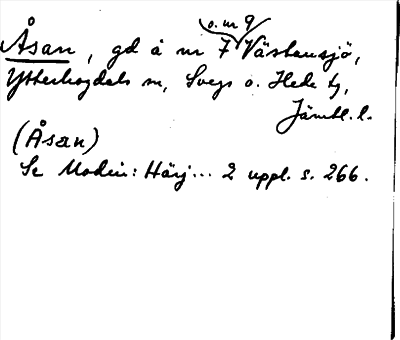 o. nr 9
Åsan, gd å nr 7 Västansjö,
Ytterhogdals sn, Svegs o. Hede tg,
Jämtl. l.
(Åsan)
Se Modin: Härj... 2 uppl. s. 266.